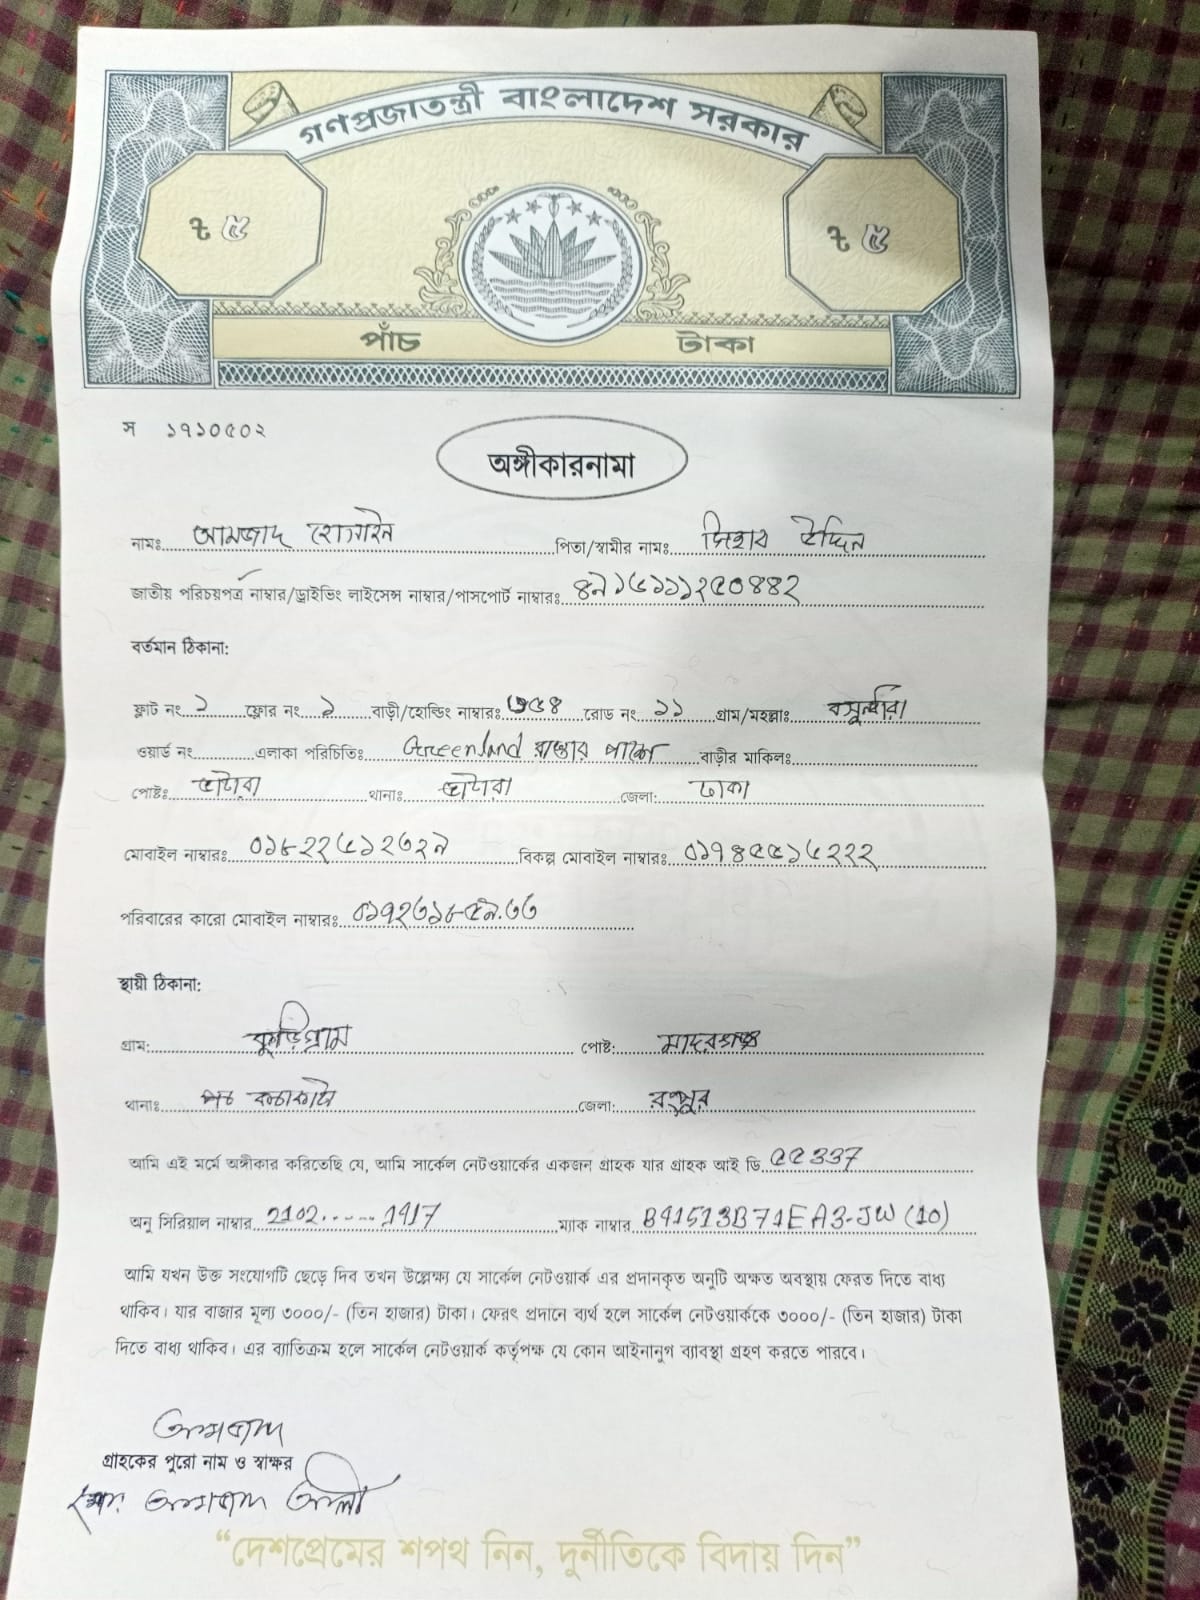 গণপ্রজাতন্ত্রী বাংলাদেশ সরকার
৳ ৫ ৳ ৫
পাঁচ টাকা
স ১৭১০৫০২
অঙ্গীকারনামা
নামঃ আমজাদ হোসাইন পিতা/স্বামীর নামঃ উদ্দিন
জাতীয় পরিচয়পত্র নাম্বার/ড্রাইভিং লাইসেন্স নাম্বার/পাসপোর্ট নাম্বারঃ
বর্তমান ঠিকানা:
ফ্লাট নং ১ ফ্লোর নং ১ বাড়ী/হোল্ডিং নাম্বারঃ ৩৫৪ রোড নং ১১ গ্রাম/মহল্লাঃ বসুন্ধরা
ওয়ার্ড নং এলাকা পরিচিতিঃ Greenland রাস্তার পাশে বাড়ীর মাকিলঃ
পোষ্টঃ ভাটারা থানাঃ ভাটারা জেলা: ঢাকা
মোবাইল নাম্বারঃ বিকল্প মোবাইল নাম্বারঃ
পরিবারের কারো মোবাইল নাম্বারঃ
স্থায়ী ঠিকানা:
গ্রাম: কুড়িগ্রাম পোষ্ট: মাদরগঞ্জ
থানাঃ কচাকাটা জেলা: রংপুর
আমি এই মর্মে অঙ্গীকার করিতেছি যে, আমি সার্কেল নেটওয়ার্কের একজন গ্রাহক যার গ্রাহক আই ডি ৫৫337
অনু সিরিয়াল নাম্বার 2102......1917 ম্যাক নাম্বার B41513B71EA3-JW (10)
আমি যখন উক্ত সংযোগটি ছেড়ে দিব তখন উল্লেক্ষ্য যে সার্কেল নেটওয়ার্ক এর প্রদানকৃত অনুটি অক্ষত অবস্থায় ফেরত দিতে বাধ্য
থাকিব। যার বাজার মূল্য ৩০০০/- (তিন হাজার) টাকা। ফেরৎ প্রদানে ব্যর্থ হলে সার্কেল নেটওয়ার্ককে ৩০০০/- (তিন হাজার) টাকা
দিতে বাধ্য থাকিব। এর ব্যাতিক্রম হলে সার্কেল নেটওয়ার্ক কর্তৃপক্ষ যে কোন আইনানুগ ব্যাবস্থা গ্রহণ করতে পারবে।
আমজাদ
গ্রাহকের পুরো নাম ও স্বাক্ষর
আমজাদ আলী
“দেশপ্রেমের শপথ নিন, দুর্নীতিকে বিদায় দিন”